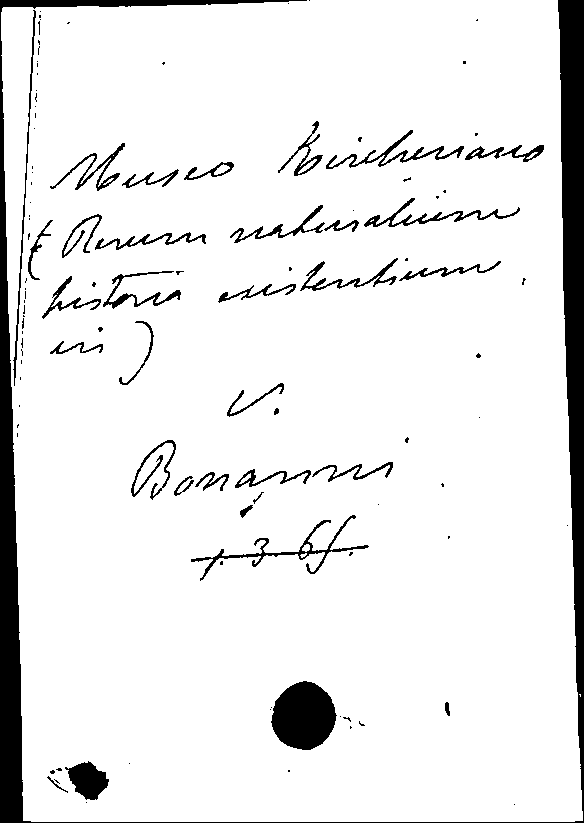 Museo Kircheriano
(Rerum naturalium
historia existentium
in)
V.
Bonanni
1. 3. 65.